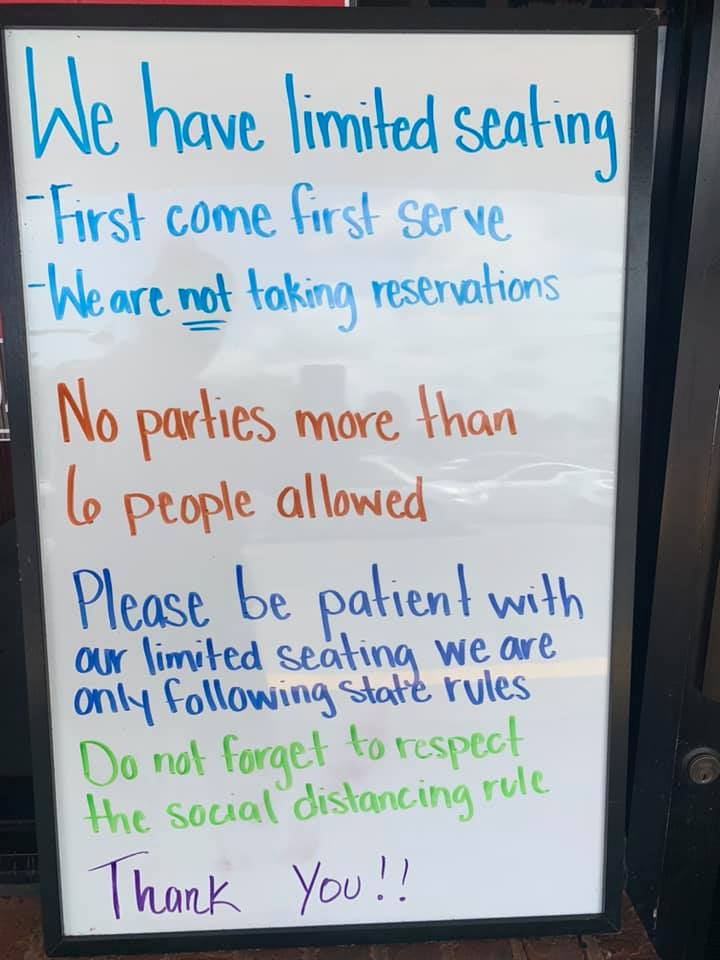 We have limited seating
-First come first serve
-We are not taking reservations
No parties more than
6 people allowed
Please be patient with
our limited seating we are
only following state rules
Do not forget to respect
the social distancing rule
Thank You!!